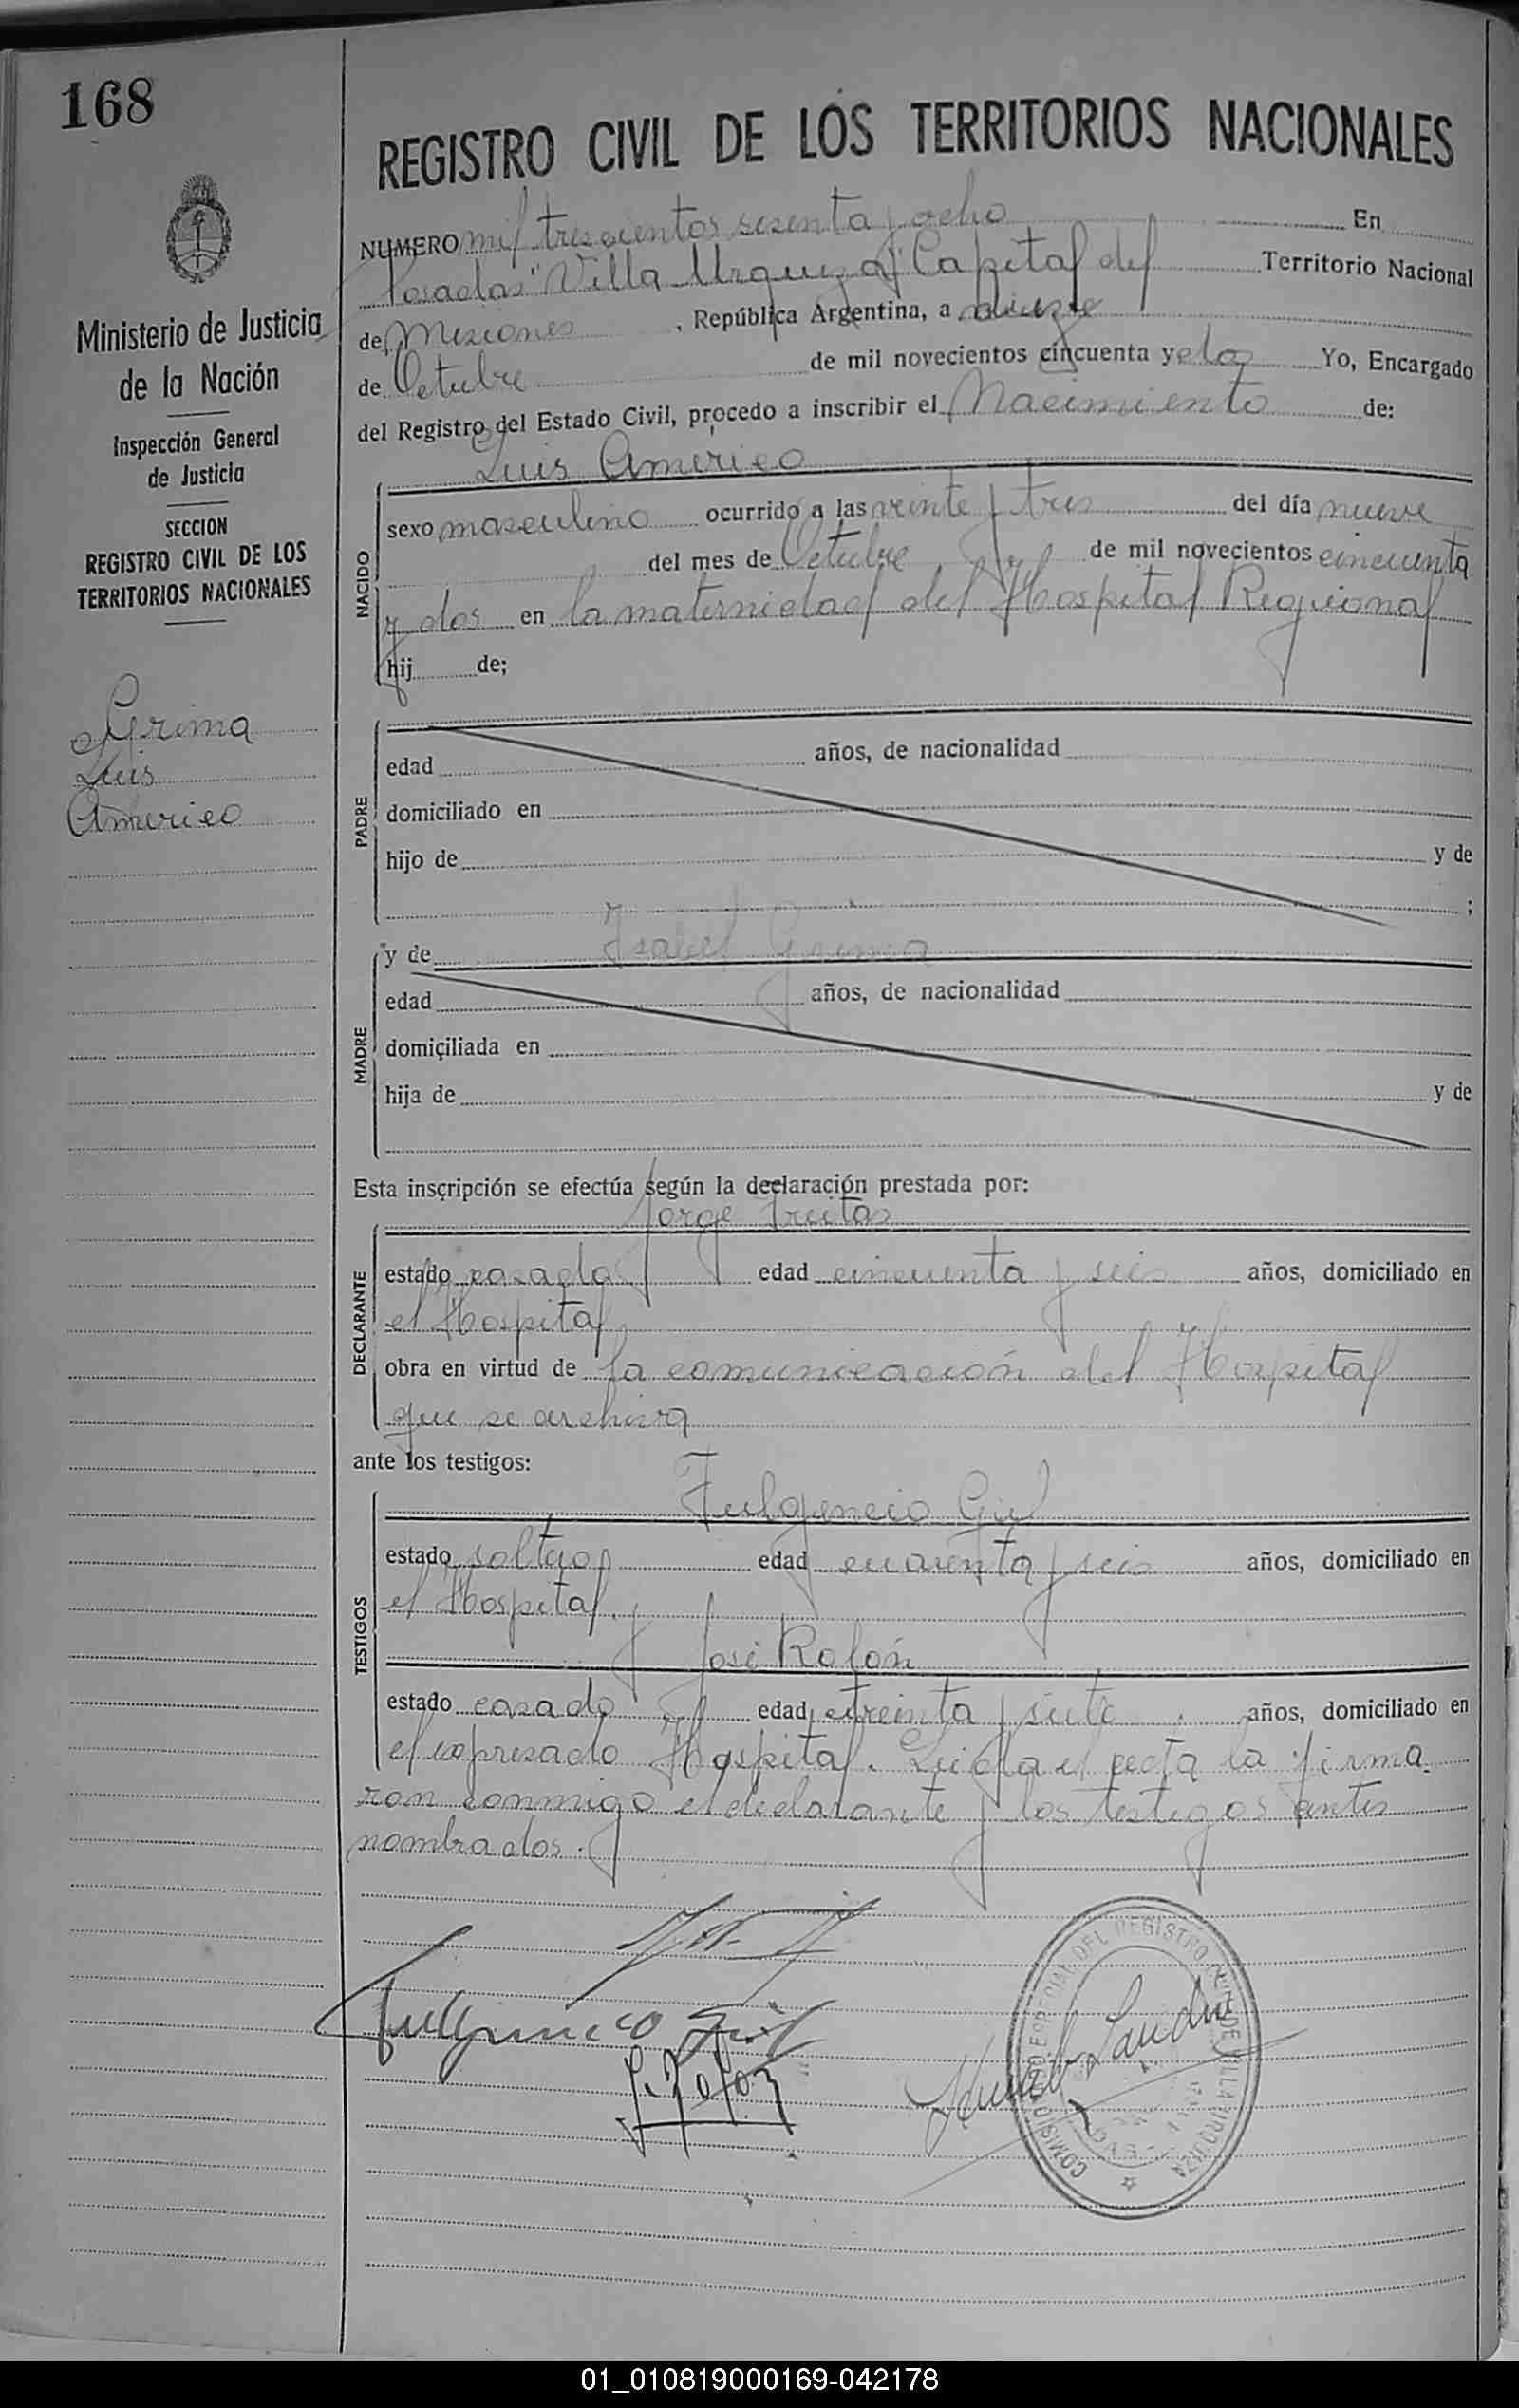 168
Ministerio de Justicia
de la Nación
Inspección General
de Justicia
SECCION
REGISTRO CIVIL DE LOS
TERRITORIOS NACIONALES
Grima
Luis
Americo
REGISTRO CIVIL DE LOS TERRITORIOS NACIONALES
NUMERO mil trescientos sesenta y ocho En
Posadas "Villa Urquiza" Capital del Territorio Nacional
de Misiones, República Argentina, a
de Octubre de mil novecientos cincuenta y dos Yo, Encargado
del Registro del Estado Civil, procedo a inscribir el Nacimiento de:
Luis Americo
NACIDO
sexo masculino ocurrido a las veinte y tres del día nueve
del mes de Octubre de mil novecientos cincuenta
y dos en la maternidad del Hospital Regional
hij de;
PADRE
edad años, de nacionalidad
domiciliado en
hijo de y de
;
MADRE
y de Isabel Grima
edad años, de nacionalidad
domiciliada en
hija de y de
Esta inscripción se efectúa según la declaración prestada por:
Jorge Freitas
DECLARANTE
estado casado edad cincuenta y seis años, domiciliado en
el Hospital
obra en virtud de la comunicación del Hospital
que se archiva
ante los testigos:
Fulgencio Gil
TESTIGOS
estado soltero edad cuarenta y seis años, domiciliado en
el Hospital.
y José Rolón
estado casado edad treinta y siete años, domiciliado en
el expresado Hospital. Leida el acta la firma
ron conmigo el declarante y los testigos antes
nombrados.
Fulgencio Gil
J. Rolon
DEL REGISTRO CIVIL DE VILLA URQUIZA
01_010819000169-042178